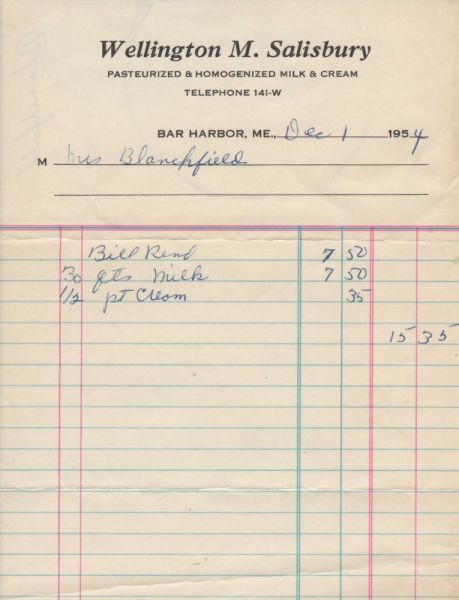 Wellington M. Salisbury
PASTEURIZED & HOMOGENIZED MILK & CREAM
TELEPHONE 141-W
BAR HARBOR, ME., Dec 1 1954
M Mrs Blanchfield
Bill Rend 7 50
30 qts Milk 7 50
1/2 pt Cream 35
15 35